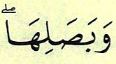 وَبَصَلِهَاۖ